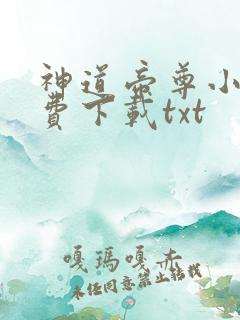 神道帝尊小
费下载txt
嘎玛嘎赤
未经同意禁止转载